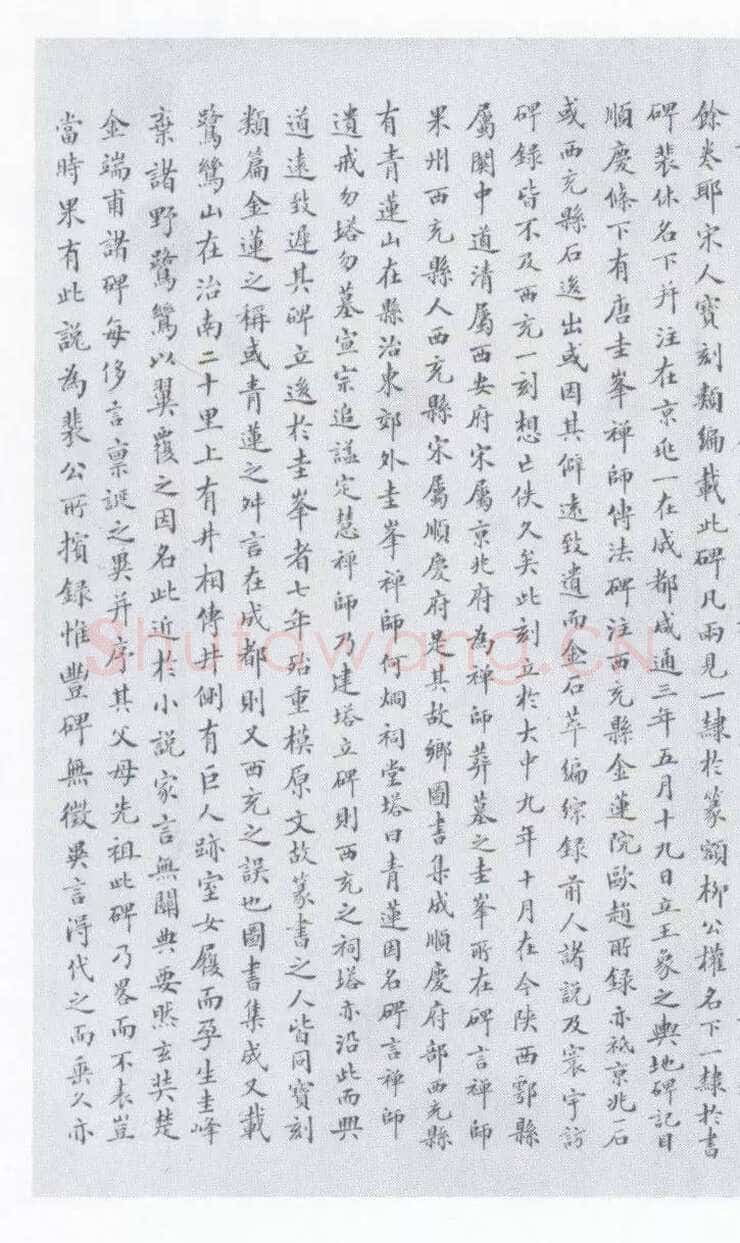 餘岑耶宋人寶刻類編載此碑凡兩見一隸於篆額柳公權名下一隸於書
碑裴休名下并注在京兆一在成都咸通三年五月十九日立王象之輿地碑記目
順慶條下有唐圭峯禪師傳法碑注西充縣金蓮院歐趙所錄亦祇京兆一石
或西充縣石後出或因其僻遠致遺而金石萃編綜錄前人諸說及寰宇訪
碑錄皆不及西充一刻想亡佚久矣此刻立於大中九年十月在今陝西鄠縣
屬關中道清屬西安府宋屬京兆府為禪師葬墓之圭峯所在碑言禪師
果州西充縣人西充縣宋屬順慶府是其故鄉圖書集成順慶府部西充縣
有青蓮山在縣治東郊外圭峯禪師何炯祠堂塔曰青蓮因名碑言禪師
遺戒勿塔勿墓宣宗追諡定慧禪師乃建塔立碑則西充之祠塔亦沿此而興
道遠致遲其碑立後於圭峯者七年殆重模原文故篆書之人皆同寶刻
類篇金蓮之稱或青蓮之舛言在成都則又西充之誤也圖書集成又載
鷟鸑山在治南二十里上有井相傳井側有巨人跡室女履而孕生圭峰
棄諸野鷟鸑以翼覆之因名此近於小說家言無關典要然玄奘楚
金端甫諸碑每侈言稟誕之異并序其父母先祖此碑乃畧而不表豈
當時果有此說為裴公所擯錄惟豐碑無徵異言得代之而乘久亦
Shufawang.CN